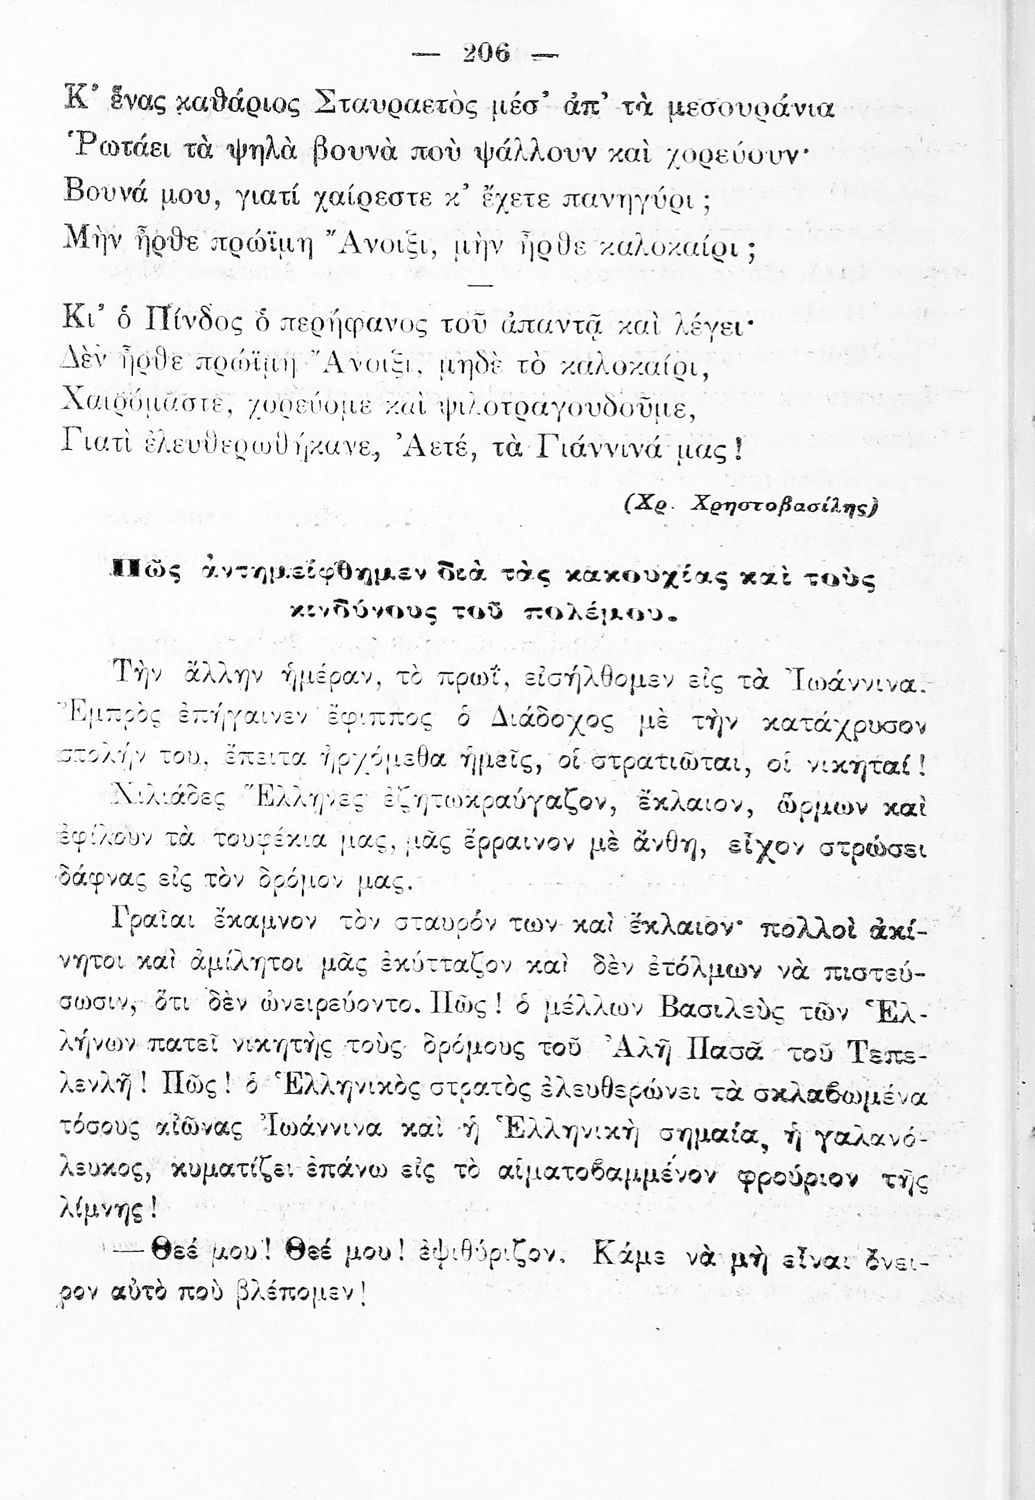 — 206 —
Κ' ἕνας καθάριος Σταυραετὸς μέσ' ἀπ' τὰ μεσουράνια
Ῥωτάει τὰ ψηλὰ βουνὰ ποὺ ψάλλουν καὶ χορεύουν·
Βουνά μου, γιατί χαίρεστε κ' ἔχετε πανηγύρι ;
Μὴν ἦρθε πρώϊμη Ἄνοιξι, μὴν ἦρθε καλοκαίρι ;
—
Κι' ὁ Πίνδος ὁ περήφανος τοῦ ἀπαντᾷ καὶ λέγει·
Δὲν ἦρθε πρώϊμη Ἄνοιξι, μηδὲ τὸ καλοκαίρι,
Χαιρόμαστε, χορεύομε καὶ ψιλοτραγουδοῦμε,
Γιατὶ ἐλευθερωθήκανε, Ἀετέ, τὰ Γιάννινά μας !
(Χρ. Χρηστοβασίλης)
Πῶς ἀντημείφθημεν διὰ τὰς κακουχίας καὶ τοὺς
κινδύνους τοῦ πολέμου.
Τὴν ἄλλην ἡμέραν, τὸ πρωΐ, εἰσήλθομεν εἰς τὰ Ἰωάννινα.
Ἐμπρὸς ἐπήγαινεν ἔφιππος ὁ Διάδοχος μὲ τὴν κατάχρυσον
στολήν του, ἔπειτα ἠρχόμεθα ἡμεῖς, οἱ στρατιῶται, οἱ νικηταί !
Χιλιάδες Ἕλληνες ἐζητωκραύγαζον, ἔκλαιον, ὥρμων καὶ
ἐφίλουν τὰ τουφέκια μας, μᾶς ἔρραινον μὲ ἄνθη, εἶχον στρώσει
δάφνας εἰς τὸν δρόμον μας.
Γραῖαι ἔκαμνον τὸν σταυρόν των καὶ ἔκλαιον· πολλοὶ ἀκί-
νητοι καὶ ἀμίλητοι μᾶς ἐκύτταζον καὶ δὲν ἐτόλμων νὰ πιστεύ-
σωσιν, ὅτι δὲν ὠνειρεύοντο. Πῶς ! ὁ μέλλων Βασιλεὺς τῶν Ἑλ-
λήνων πατεῖ νικητὴς τοὺς δρόμους τοῦ Ἀλῆ Πασᾶ τοῦ Τεπε-
λενλῆ ! Πῶς ! ὁ Ἑλληνικὸς στρατὸς ἐλευθερώνει τὰ σκλαβωμένα
τόσους αἰῶνας Ἰωάννινα καὶ ἡ Ἑλληνικὴ σημαία, ἡ γαλανό-
λευκος, κυματίζει ἐπάνω εἰς τὸ αἱματοβαμμένον φρούριον τῆς
λίμνης !
— Θεέ μου ! Θεέ μου ! ἐψιθύριζον. Κάμε νὰ μὴ εἶναι ὄνει-
ρον αὐτὸ ποὺ βλέπομεν !